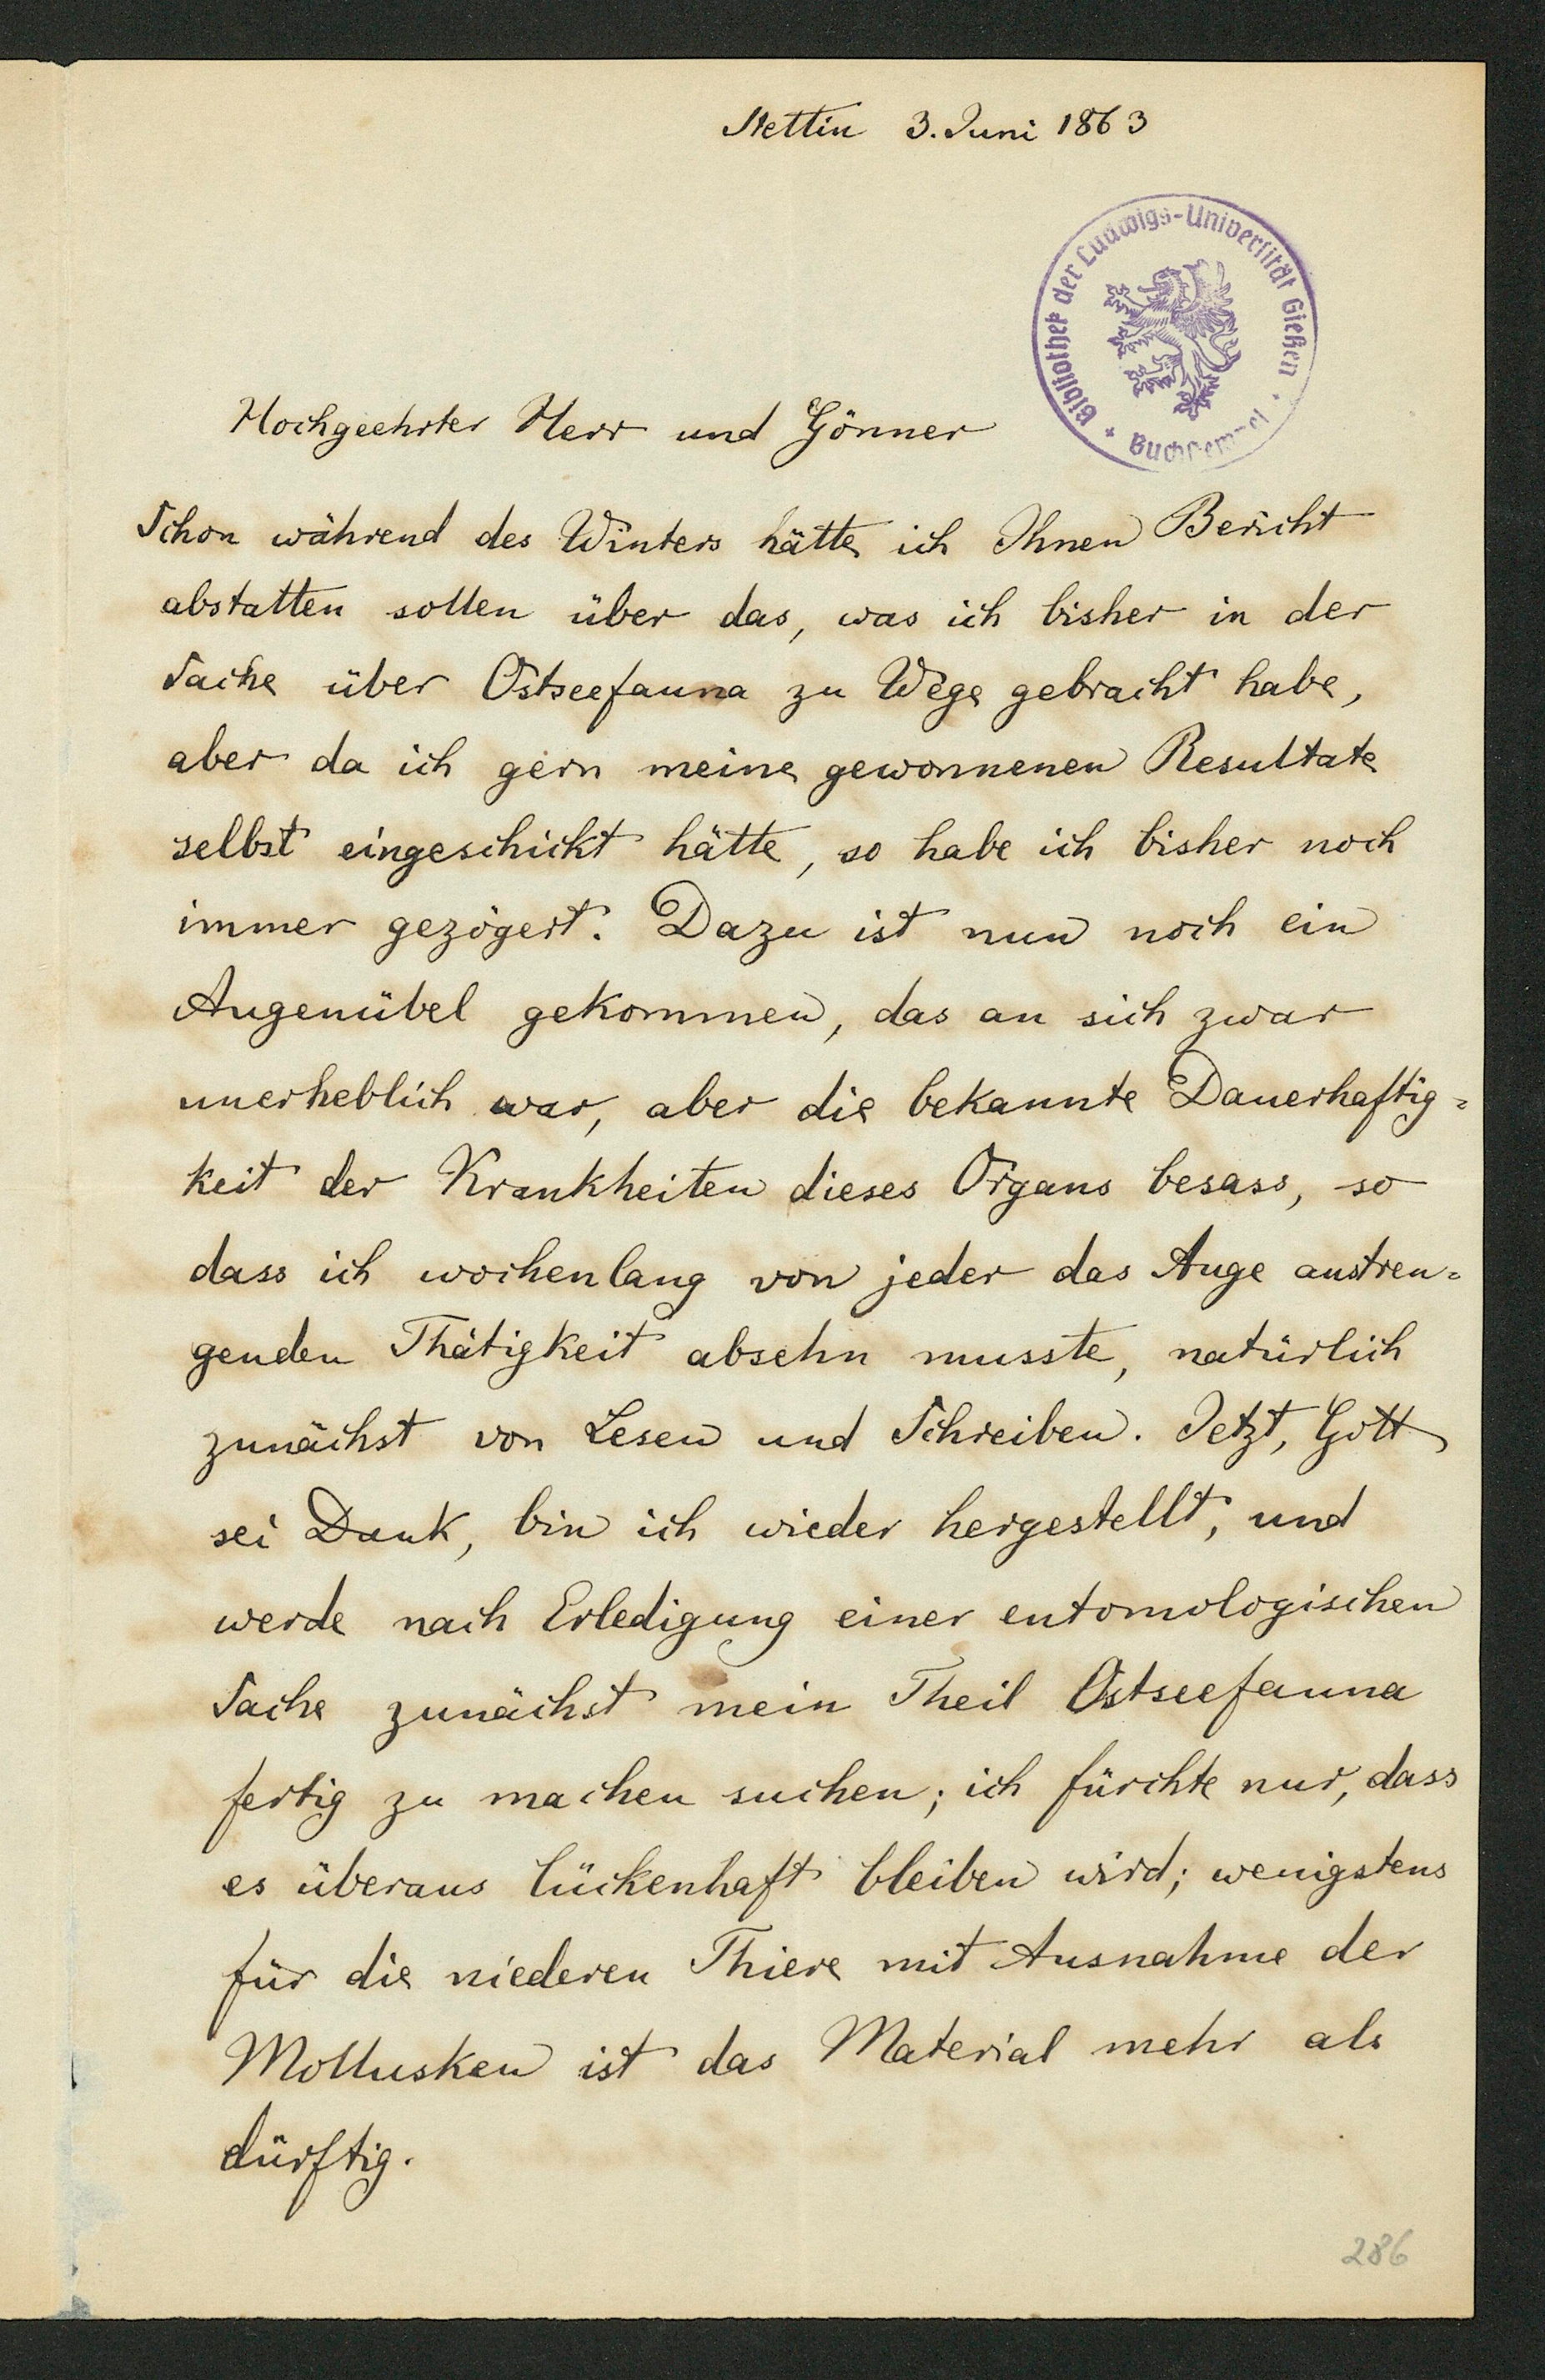 Stettin 3. Juni 1863
Bibliothek der Ludwigs-Universität Gießen
Hochgeehrter Herr und Gönner
Schon während des Winters hätte ich Ihnen Bericht
abstatten sollen über das, was ich bisher in der
Sache über Ostseefauna zu Wege gebracht habe,
aber da ich gern meine gewonnenen Resultate
selbst eingeschickt hätte, so habe ich bisher noch
immer gezögert. Dazu ist nun noch ein
Augenübel gekommen, das an sich zwar
unerheblich war, aber die bekannte Dauerhaftig=
keit der Krankheiten dieses Organs besass, so
dass ich wochenlang von jeder das Auge anstren=
genden Thätigkeit absehn musste, natürlich
zunächst von Lesen und Schreiben. Jetzt, Gott
sei Dank, bin ich wieder hergestellt, und
werde nach Erledigung einer entomologischen
Sache zunächst mein Theil Ostseefauna
fertig zu machen suchen; ich fürchte nur, dass
es überaus lückenhaft bleiben wird; wenigstens
für die niederen Thiere mit Ausnahme der
Mollusken ist das Material mehr als
dürftig.
286